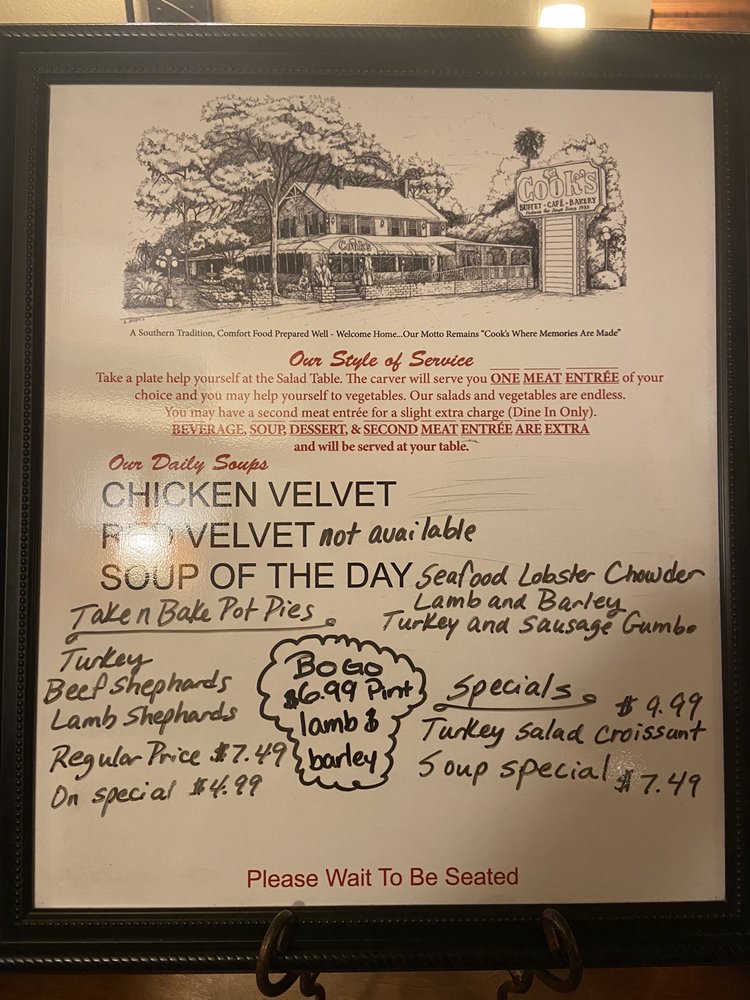 Cook's
BUFFET - CAFÉ - BAKERY
Cook's
A Southern Tradition, Comfort Food Prepared Well - Welcome Home...Our Motto Remains "Cook's Where Memories Are Made"
Our Style of Service
Take a plate help yourself at the Salad Table. The carver will serve you ONE MEAT ENTRÉE of your
choice and you may help yourself to vegetables. Our salads and vegetables are endless.
You may have a second meat entrée for a slight extra charge (Dine In Only).
BEVERAGE, SOUP, DESSERT, & SECOND MEAT ENTRÉE ARE EXTRA
and will be served at your table.
Our Daily Soups
CHICKEN VELVET
RED VELVET not available
SOUP OF THE DAY Seafood Lobster Chowder
Lamb and Barley
Turkey and Sausage Gumbo
Take n Bake Pot Pies
Turkey
Beef Shephards
Lamb Shephards
Regular Price $7.49
On special $4.99
BOGO
$6.99 Pint
lamb &
barley
Specials
$9.99
Turkey Salad Croissant
Soup special $7.49
Please Wait To Be Seated